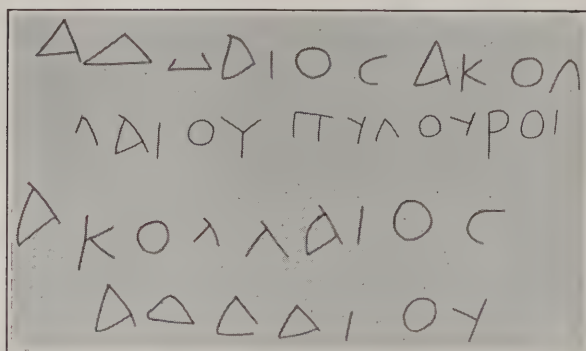 ΑΔΔΑΙΟC ΑΚΟΛ
ΛΑΙΟΥ ΠΥΛΟΥΡΟΙ
ΑΚΟΛΛΑΙΟC
ΑΔΔΑΙΟΥ